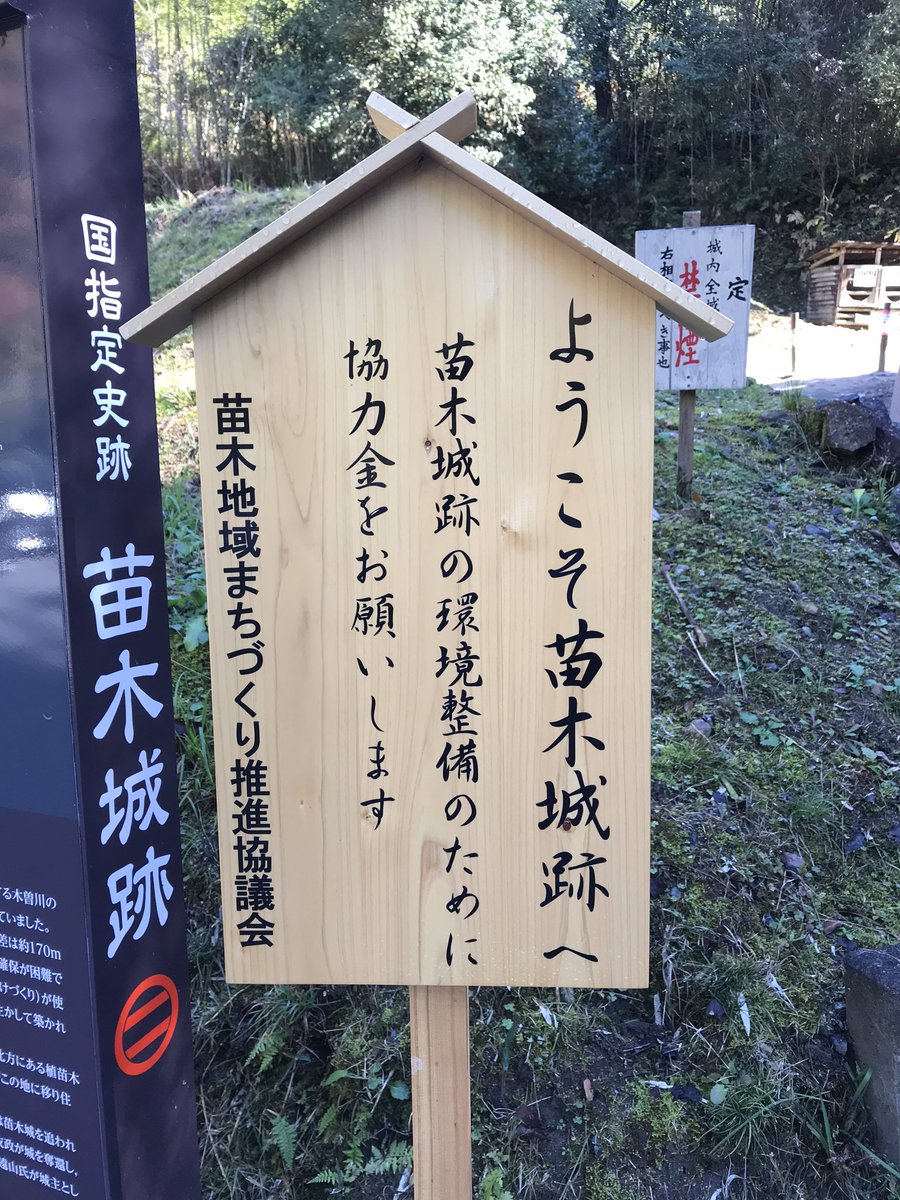 ようこそ苗木城跡へ
苗木城跡の環境整備のために
協力金をお願いします
苗木地域まちづくり推進協議会
国指定史跡 苗木城跡
する木曽川の
ていました。
差は約170m
確保が困難で
けづくり)が使
生かして築かれ
北方にある植苗木
この地に移り住
は苗木城を追われ
友政が城を奪還し、
遠山氏が城主とし
定
城内全域
禁煙
き事也